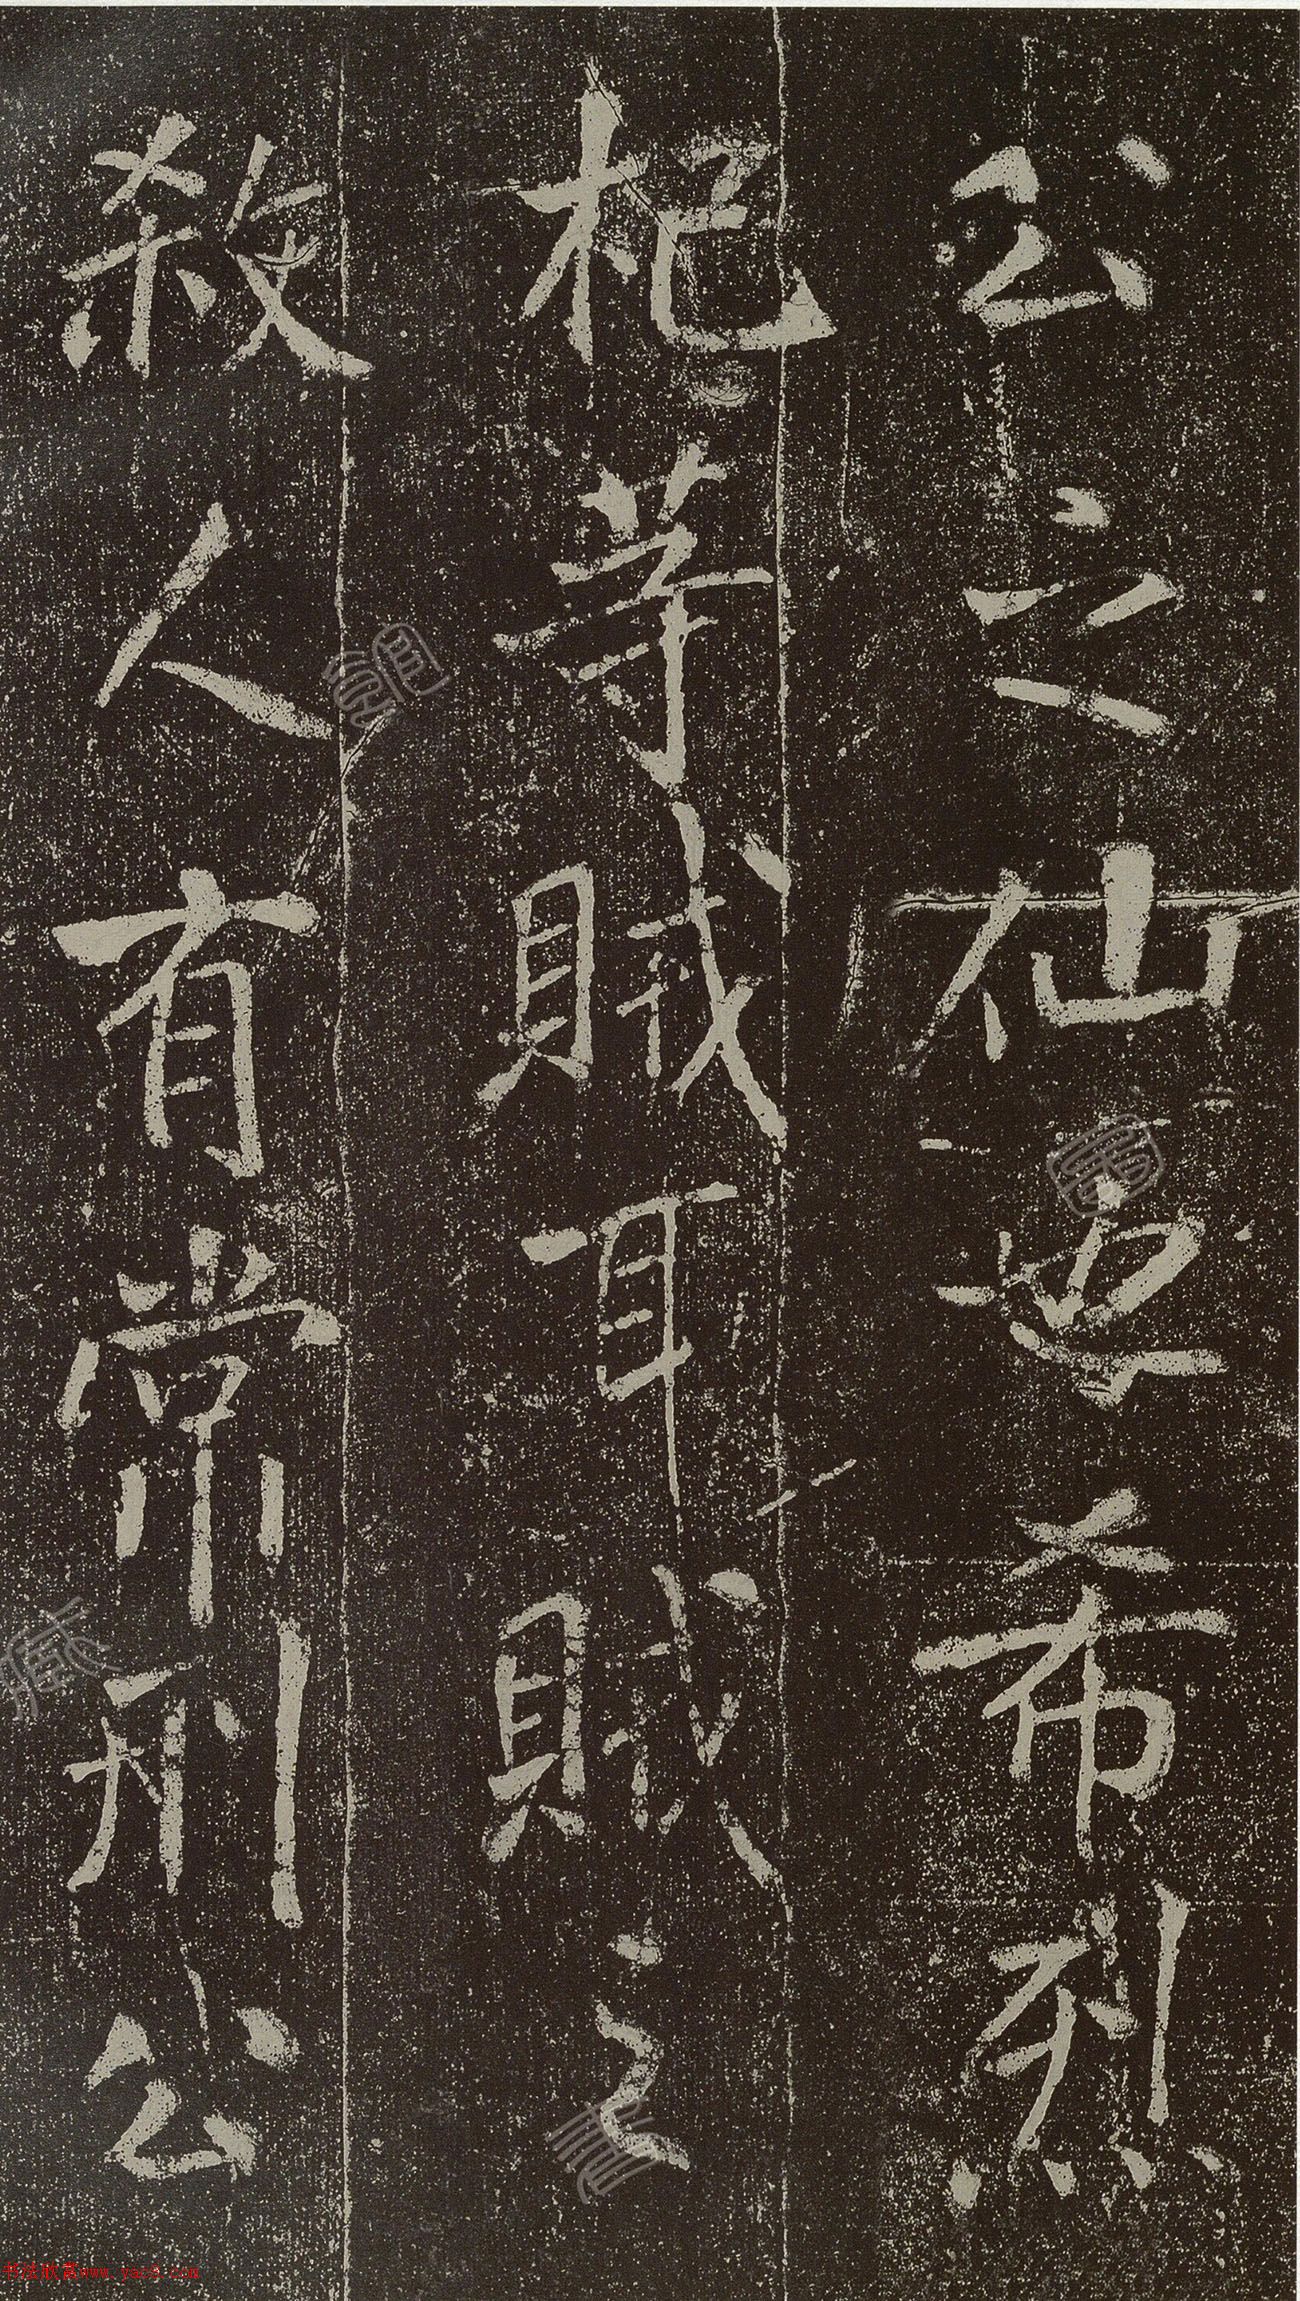 公之仙也希烈
杞等賊耳賊之
殺人有常刑公
书法欣赏www.yac8.com